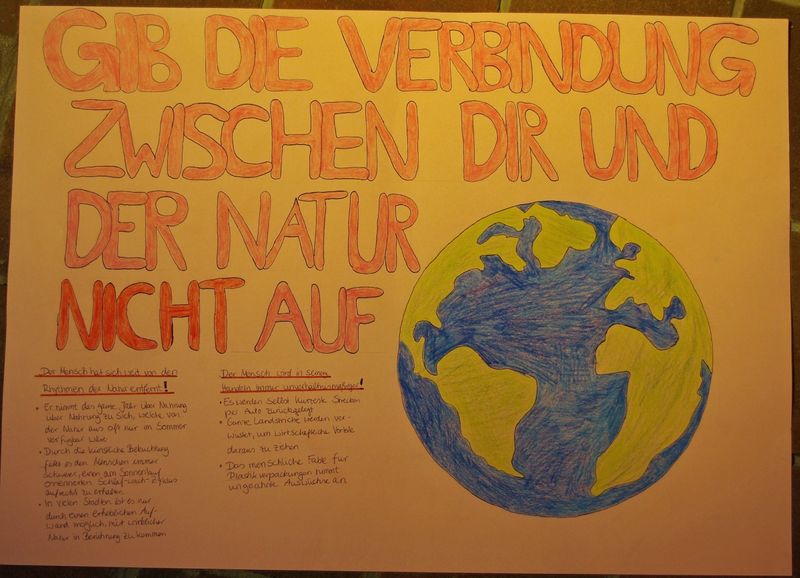 GIB DIE VERBINDUNG
ZWISCHEN DIR UND
DER NATUR
NICHT AUF
Der Mensch hat sich weit von den
Rhythmen der Natur entfernt!
• Er nimmt das ganze Jahr über Nahrung
über Nahrung zu sich, welche von
der Natur aus oft nur im Sommer
verfügbar wäre
• Durch die künstliche Beleuchtung
fällt es den Menschen immer
schwerer, einen am Sonnenlauf
orientierten Schlaf-wach-zyklus
aufrecht zu erhalten
• In vielen Städten ist es nur
durch einen erheblichen Auf-
wand möglich, mit wirklicher
Natur in Berührung zu kommen
Der Mensch wird in seinem
Handeln immer unverhältnismäßiger!
• Es werden selbst kürzeste Strecken
per Auto zurückgelegt
• Ganze Landstriche werden ver-
wüstet, um wirtschaftliche Vorteile
daraus zu ziehen
• Das menschliche Fable für
Plastikverpackungen nimmt
ungeahnte Auswüchse an